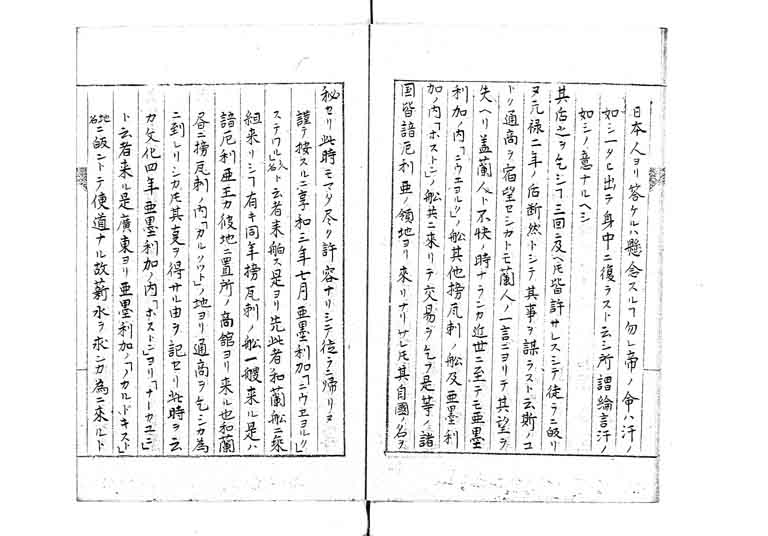 日本人ヨリ答ケルハ懸念スルヿ勿レ帝ノ命ハ汗ノ
如シ一タヒ出テ身中ニ復ラスト云シ所謂綸言汗ノ
如シノ意ナルヘシ
其后之ヲ乞シヿ三回ニ及ヘ𪜈皆許サレスシテ徒ラニ皈リ
ヌ元禄二年ノ后断然トシテ其事ヲ謀ラスト云斯ノコ
トク通商ヲ宿望セシカトモ蘭人ノ一言ニヨリテ其望ヲ
失ヘリ盖蘭人ト不快ノ時ナランカ近世ニ至テモ亜墨
利加ノ内「ニウエヨルク」ノ舩其他榜瓦刺ノ舩及亜墨利
加ノ内「ボストン」ノ舩共ニ来リテ交易ヲ乞ヲ是等ノ諸
国皆諳厄利亜ノ領地ヨリ来リナリサレ𪜈其自國ノ名ヲ
秘セリ此時モマタ尽ク許容ナリシテ徒ラニ帰リヌ
謹テ按スルニ享和三年七月亜墨利加「ニウセヨルク」
ステワル人名ト云者来舶ス是ヨリ先此者和蘭舩ニ乗
組来リシヿ有キ同年榜瓦刺ノ舩一艘来ル是ハ
諳厄利亜王カ彼地ニ置所ノ商館ヨリ来ル也和蘭
人榜瓦刺ノ内「カルクワト」ノ地ヨリ通商ヲ乞シカ為
ニ到レリシカ𪜈其支ヲ得サル由ヲ記セリ此時ヲ云
カ文化四年亜墨利加ノ内「ボストン」ヨリ「ナーカユニ」
ト云者来ル是廣東ヨリ亜墨利加ノ「ノカルドキスト」
地名ニ皈ントテ使道ナル故薪水ヲ求ンカ為ニ来ルト